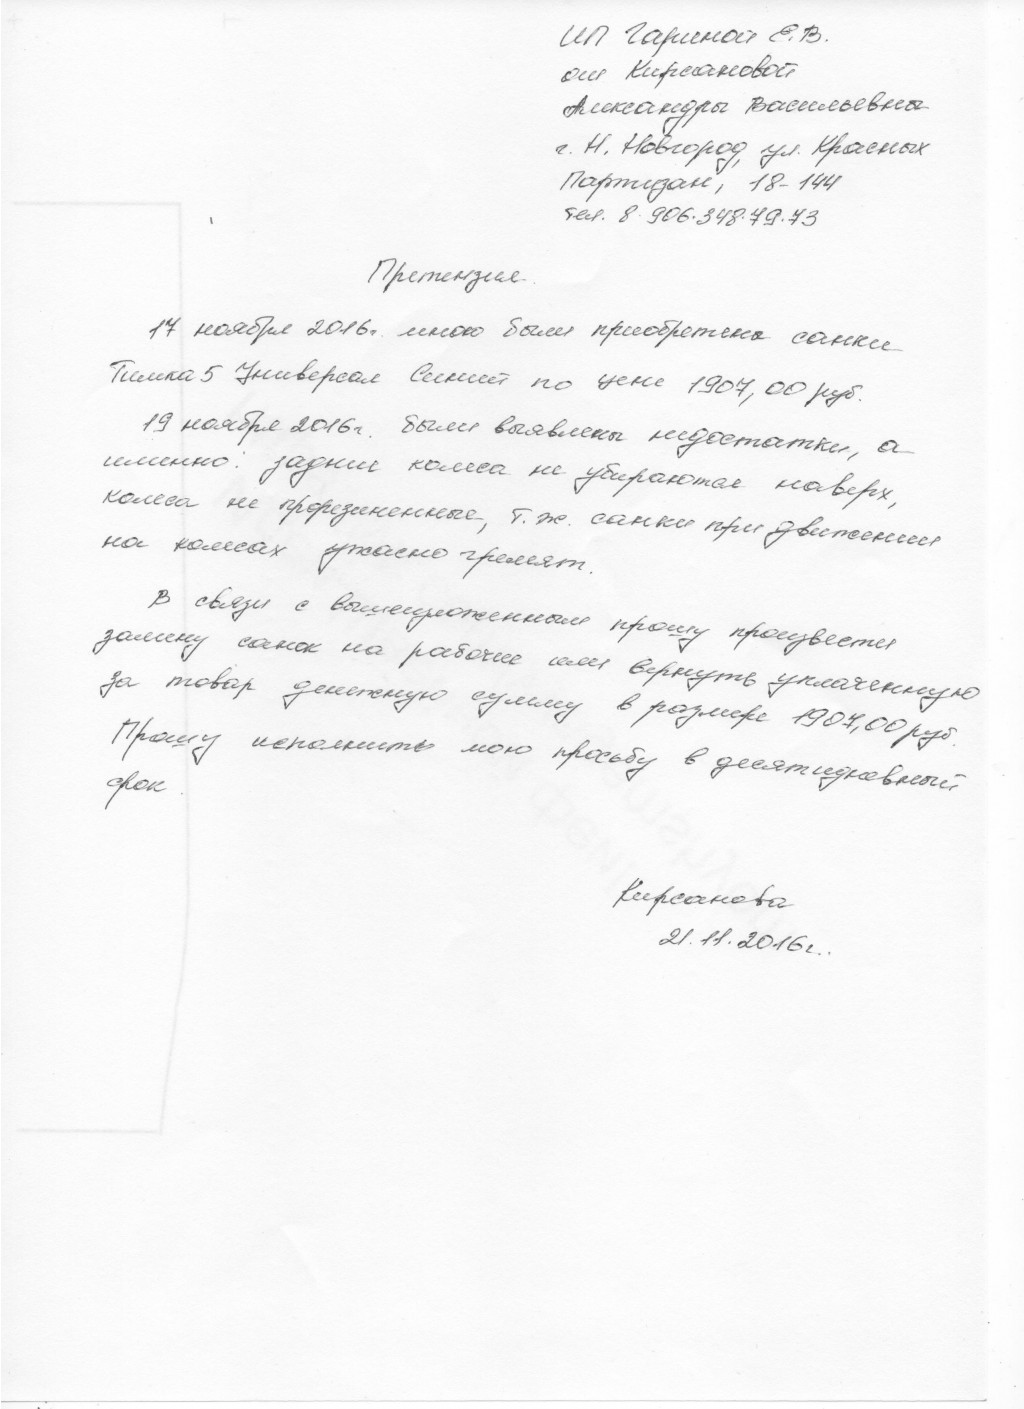 ИП Гариной Е.В.
от Кирсановой
Александры Васильевны
г. Н. Новгород, ул. Красных
Партизан, 18-144
тел. 8.906.348.79.73
Претензия.
17 ноября 2016г. мною были приобретены санки
Тимка 5 Универсал Синий по цене 1907,00 руб.
19 ноября 2016г. были выявлены недостатки, а
именно: задние колеса не убираются наверх,
колеса не прорезиненные, т.ж. санки при движении
на колесах ужасно гремят.
В связи с вышеизложенным прошу произвести
замену санок на рабочие или вернуть уплаченную
за товар денежную сумму в размере 1907,00 руб.
Прошу исполнить мою просьбу в десятидневный
срок.
Кирсанова
21.11.2016г.